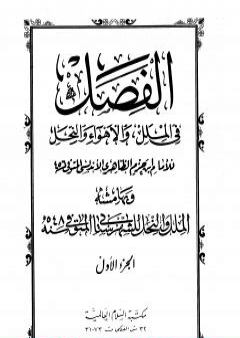 الفصل
في الملل والأهواء والنحل
للامام ابن حزم الظاهرى الأندلسى المتوفى
وبهامشه
الملل والنحل للشهرستانى المتوفى سنة ٥٤٨ هـ
الجزء الأول
مكتبة السلام العالمية